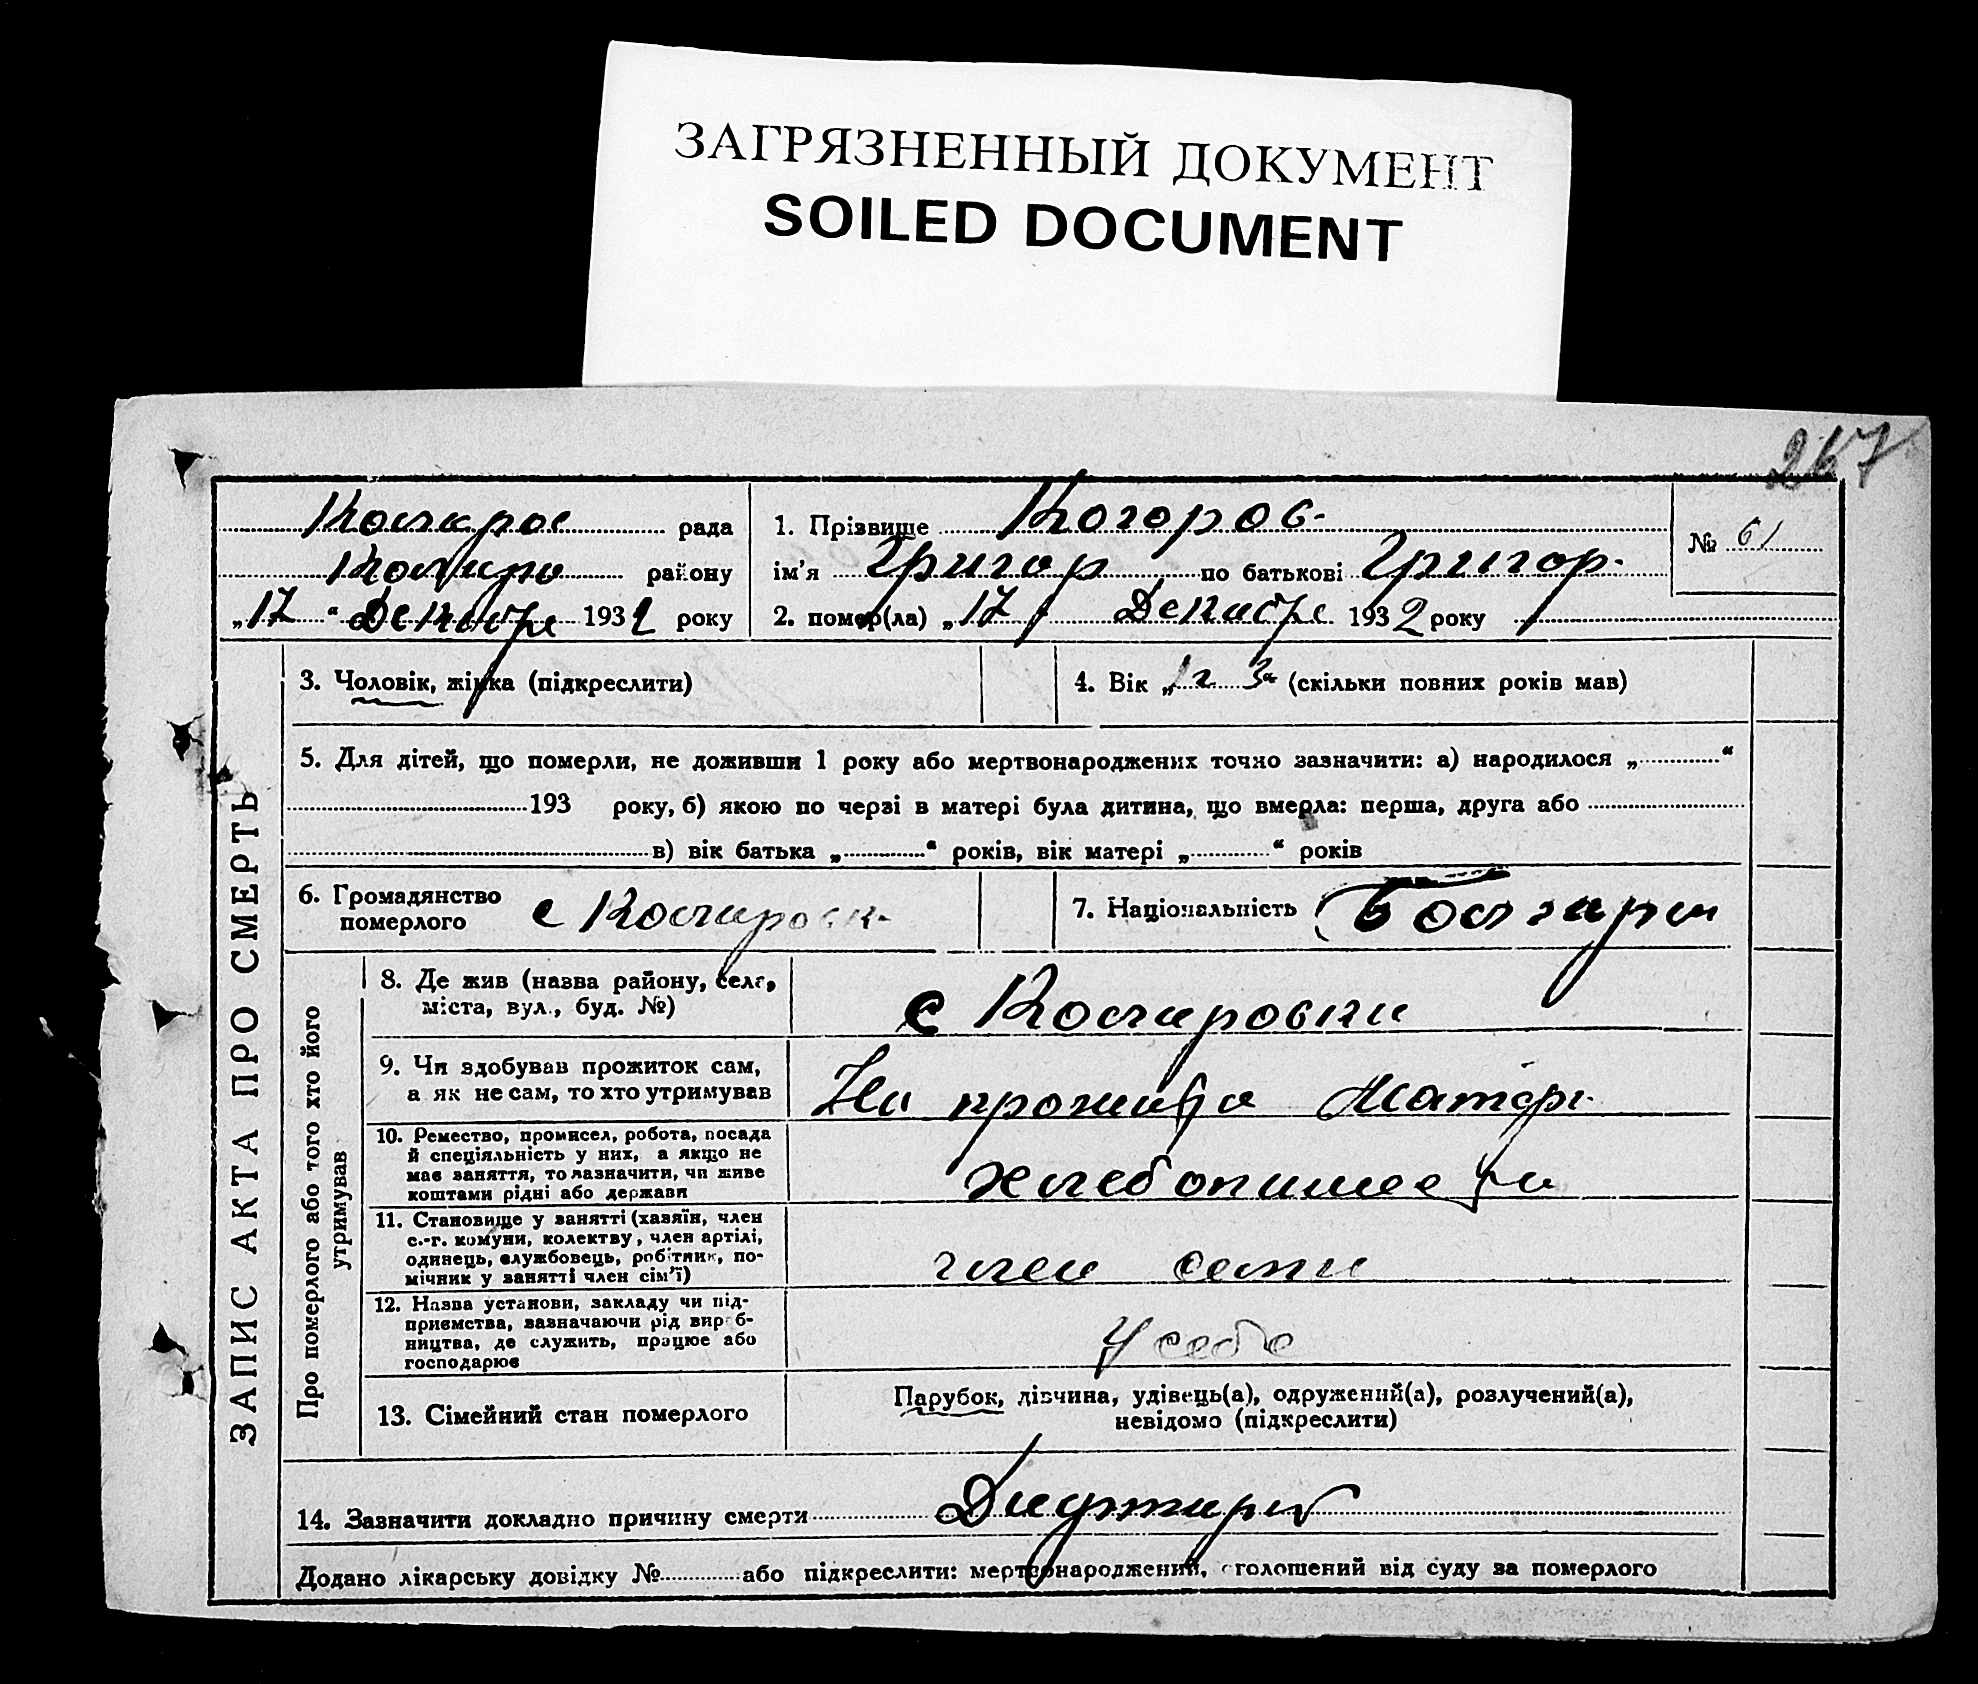 ЗАГРЯЗНЕННЫЙ ДОКУМЕНТ
SOILED DOCUMENT
267
рада
району
„17“ Декабре 1932 року
1. Прізвище
ім'я Григор по батькові Григор.
2. помер(ла) „17 Декабре 1932 року
№ 61
ЗАПИС АКТА ПРО СМЕРТЬ
3. Чоловік, жінка (підкреслити)
4. Вік „1 г 3“ (скільки повних років мав)
5. Для дітей, що померли, не доживши 1 року або мертвонароджених точно зазначити: а) народилося „ “
193 року, б) якою по черзі в матері була дитина, що вмерла: перша, друга або
в) вік батька „ “ років, вік матері „ “ років
6. Громадянство
померлого
7. Національність
Про померлого або того хто його
утримував
8. Де жив (назва району, села,
міста, вул., буд. №)
с
9. Чи здобував прожиток сам,
а як не сам, то хто утримував
На Матері
10. Ремество, промисел, робота, посада
й спеціяльність у них, а якщо не
мав заняття, то зазначити, чи живе
коштами рідні або держави
11. Становище у занятті (хазяїн, член
с.-г. комуни, колективу, член артілі,
одинець, службовець, робітник, по-
мічник у занятті член сім'ї)
член семи
12. Назва установи, закладу чи під-
приємства, зазначаючи рід вироб-
ництва, де служить, працює або
господарює
У себе
13. Сімейний стан померлого
Парубок, дівчина, удівець(а), одружений(а), розлучений(а),
невідомо (підкреслити)
14. Зазначити докладно причину смерти
Додано лікарську довідку № або підкреслити: мертвонароджений, оголошений від суду за померлого